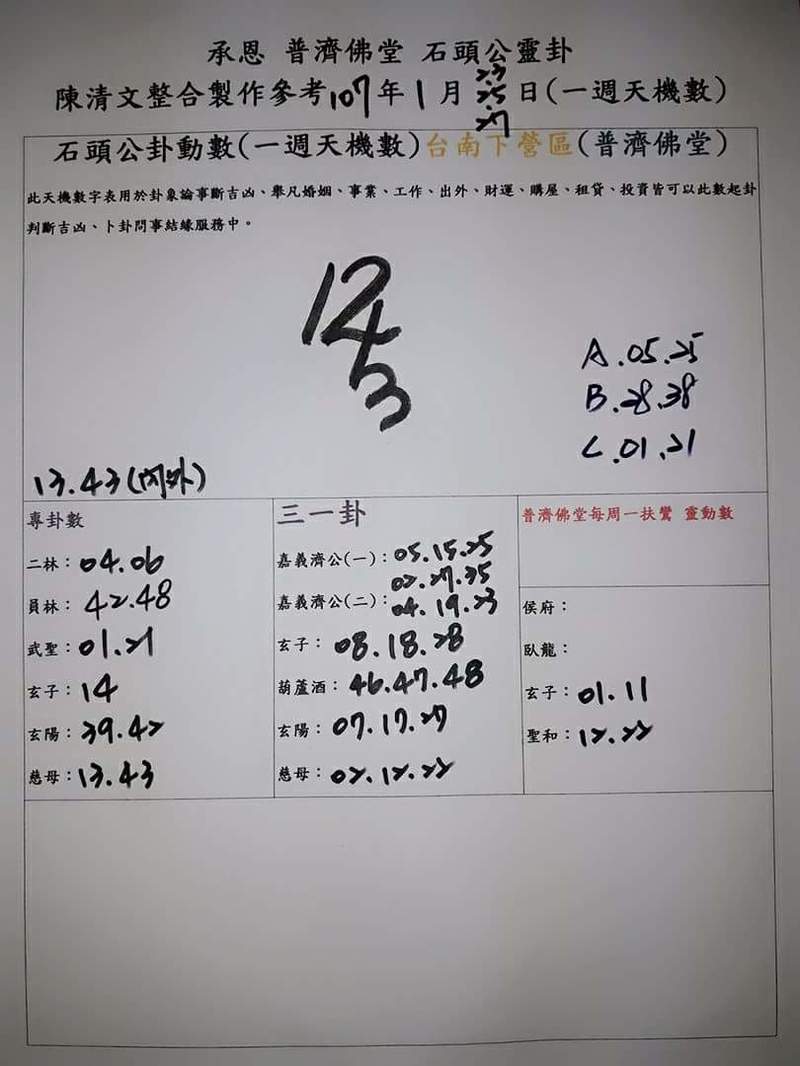 承恩 普濟佛堂 石頭公靈卦
陳清文整合製作參考107年1月23 25 27日(一週天機數)
石頭公卦動數(一週天機數)台南下營區(普濟佛堂)
此天機數字表用於卦象論事斷吉凶、舉凡婚姻、事業、工作、出外、財運、購屋、租貸、投資皆可以此數起卦
判斷吉凶、卜卦問事結緣服務中。
12
4
3
A.05.25
B.28.38
C.01.21
13.43(內外)
專卦數
二林：04.06
員林：42.48
武聖：01.21
玄子：14
玄陽：39.42
慈母：13.43
三一卦
嘉義濟公(一)：05.15.25
02.27.35
嘉義濟公(二)：04.19.23
玄子：08.18.28
葫蘆酒：46.47.48
玄陽：07.17.27
慈母：02.12.22
普濟佛堂每周一扶鸞 靈動數
侯府：
臥龍：
玄子：01.11
聖和：12.22